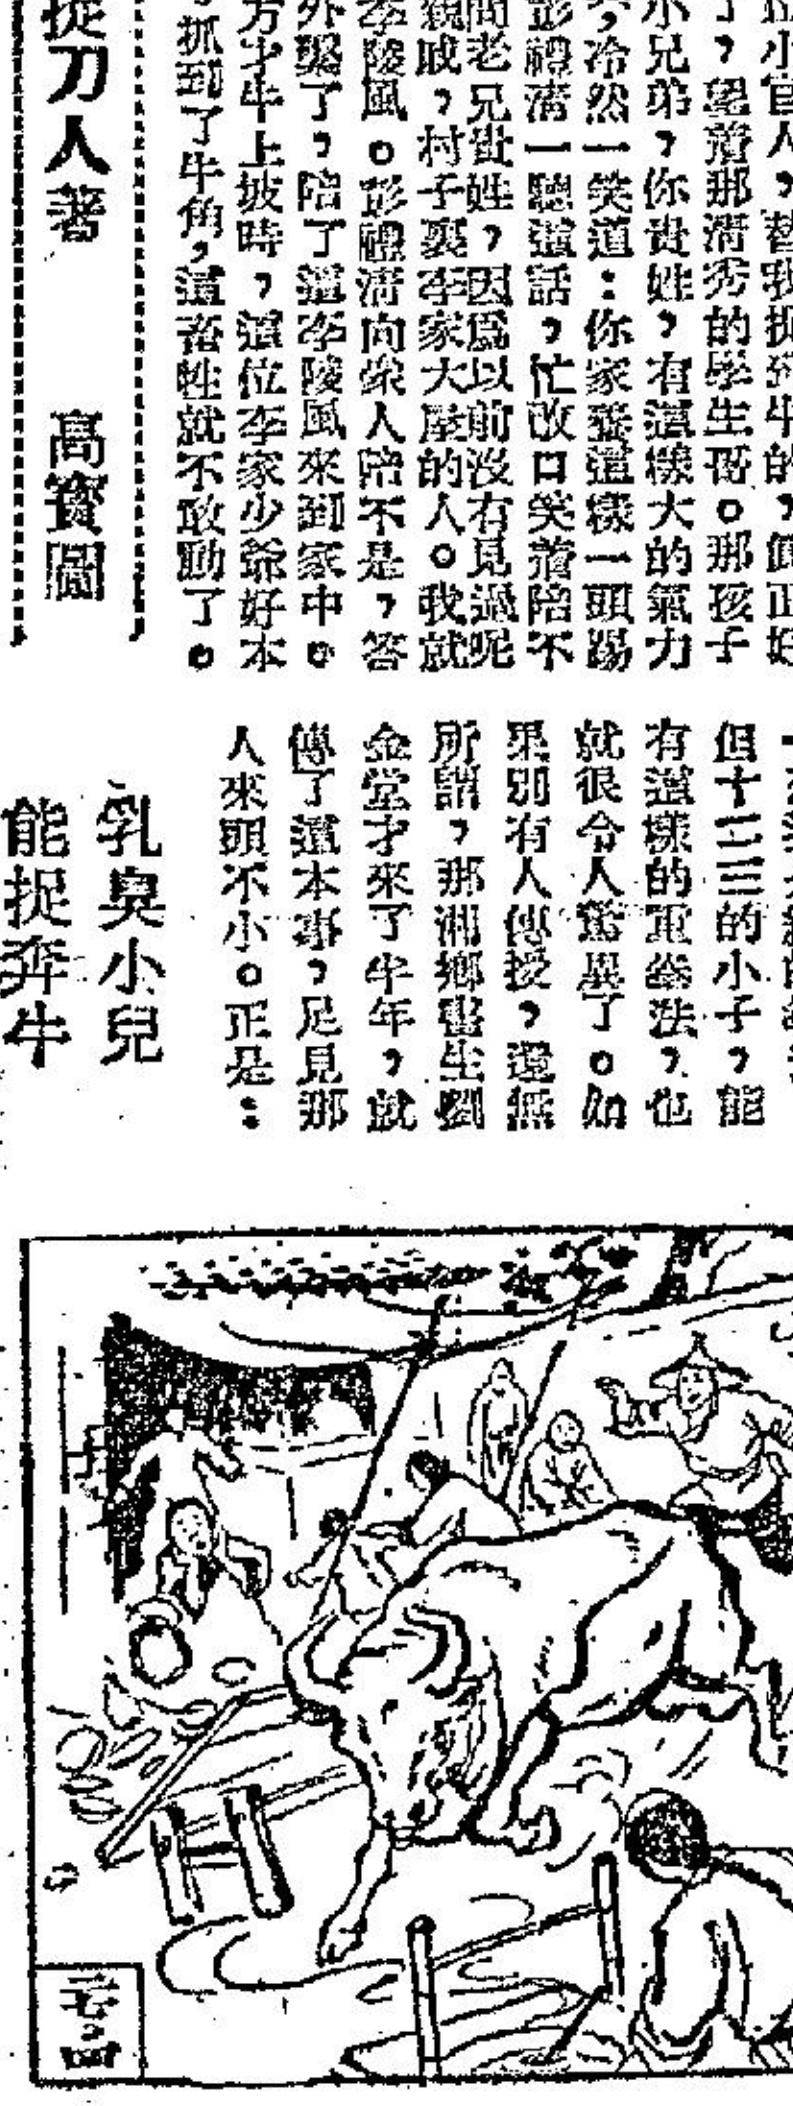 小官人，替我抓到牛的，真正好
了，望着那清秀的學生哥。那孩子
小兄弟，你貴姓，有這樣大的氣力
，冷然一笑道：你家養這樣一頭
彭禮清一聽這話，忙改口笑着陪不
問老兄貴姓，因爲以前沒有見過呢
親戚，村子裏李家大屋的人。我就
李陵風。彭禮清向衆人陪不是，答
外婆了，陪了這李陵風來到家中。
方才牛上坡時，這位李家少爺好本
抓到了牛角，這畜牲就不敢動了。
捉刀人著
高寶圖
但十二三的小子，能
有這樣的重拳法，也
就很令人驚異了。如
果別有人傳授，還無
所謂，那湘鄉書生劉
金堂才來了半年，就
傳了這本事，足見那
人來頭不小。正是：
乳臭小兒
能捉奔牛